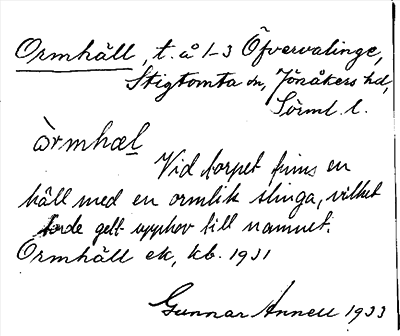 Ormhäll, t. å 1-3 Öfvervalinge,
Stigtomta sn, Jönåkers hd,
Sörml. l.
òrmhæl
Vid torpet finns en
häll med en ormlik slinga, vilket
torde gett upphov till namnet.
Ormhäll ek, kb. 1931
Gunnar Annell 1933